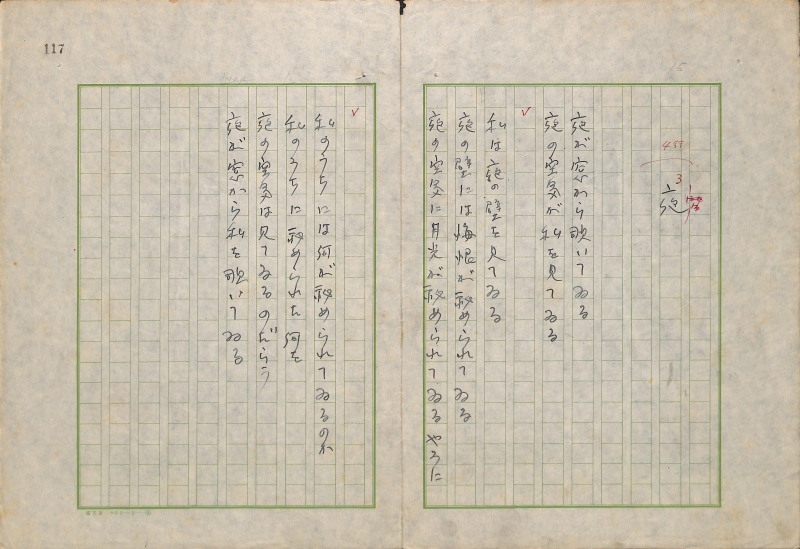 117
夜
夜が窓から覗いてゐる
夜の空気が私を見てゐる
私は夜の壁を見てゐる
夜の壁には悔恨が秘められてゐる
夜の空気に月光が秘められてゐるやうに
私のうちには何が秘められてゐるのか
私のうちに秘められた何を
夜の空気は見てゐるのだらう
夜が窓から私を覗いてゐる